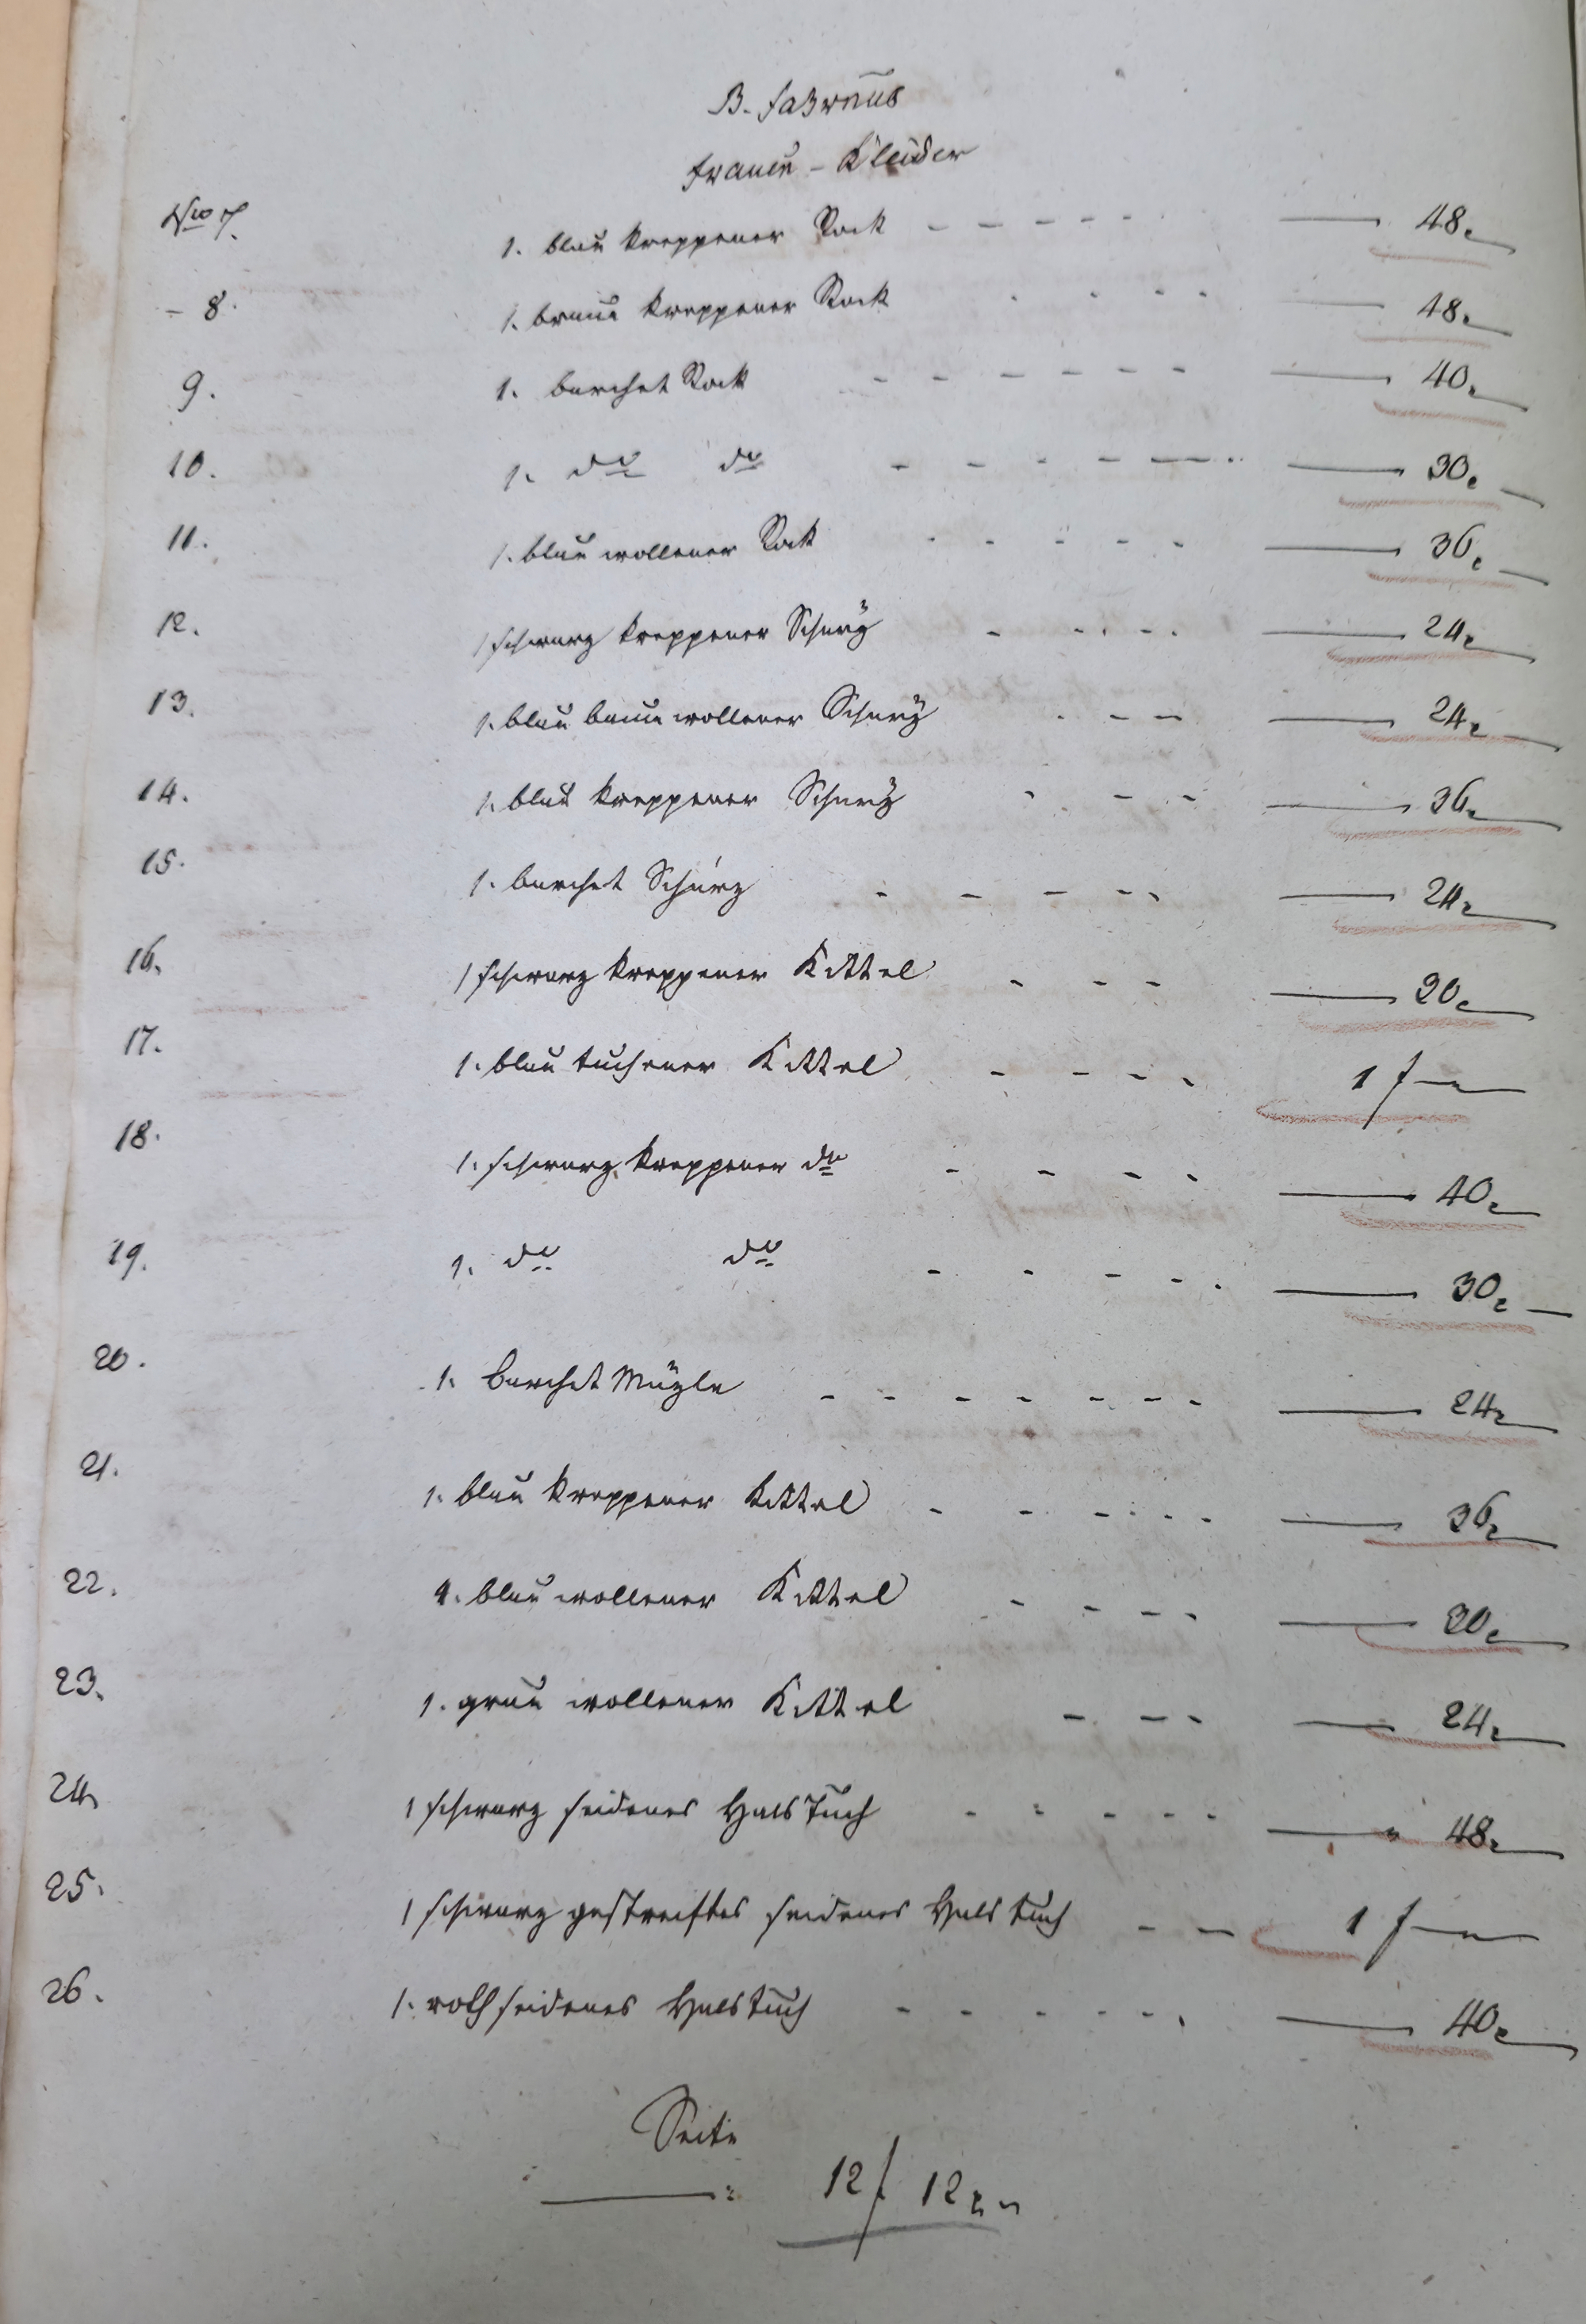 B. Fahrnis
Frauen - Kleider
No 7. 1. blau kreppener Rock - - - - - — 48.
- 8. 1. braun kreppener Rock - - - - — 48.
9. 1. barchet Rock - - - - - - — 40.
10. 1. do do - - - - - — 30.
11. 1. blau wollener Rock - - - - - — 36.
12. 1 schwarz kreppener Schurz - - - - — 24.
13. 1. blau baumwollener Schurz - - - — 24.
14. 1. blau kreppener Schurz - - - — 36.
15. 1. barchet Schurz - - - - - — 24.
16. 1 schwarz kreppener Kittel - - - — 30.
17. 1. blau tuchener Kittel - - - - 1 f —
18. 1. schwarz kreppener do - - - - — 40.
19. 1. do do - - - - - — 30.
20. 1. barchet Müzle - - - - - - - — 24.
21. 1. blau kreppener Kittel - - - - - — 36.
22. 1. blau wollener Kittel - - - - — 30.
23. 1. grau wollener Kittel - - - — 24.
24. 1 schwarz seidenes Halstuch - - - - - — 48.
25. 1 schwarz gestreiftes seidenes Halstuch - - 1 f —
26. 1. roth seidenes Halstuch - - - - - - — 40.
Seite
—: 12 f 12